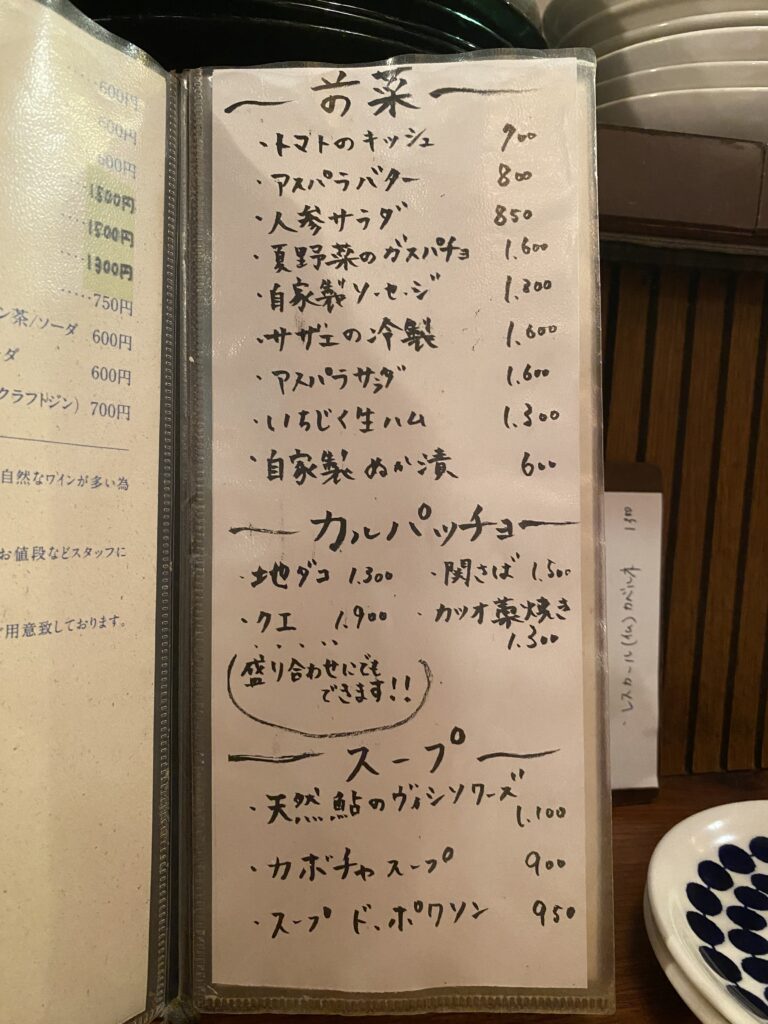 600円
600円
600円
1500円
1500円
1300円
750円
ン茶/ソーダ 600円
ーダ 600円
クラフトジン) 700円
自然なワインが多い為
お値段などスタッフに
ご用意致しております。
前菜
・トマトのキッシュ 900
・アスパラバター 800
・人参サラダ 850
・夏野菜のガスパチョ 1.600
・自家製ソーセージ 1.300
・サザエの冷製 1.600
・アスパラサラダ 1.600
・いちじく生ハム 1.300
・自家製ぬか漬 600
カルパッチョ
・地ダコ 1.300 ・関さば 1.500
・クエ 1.900 ・カツオ藁焼き 1.300
盛り合わせにでも
できます!!
スープ
・天然鮎のヴィシソワーズ 1.100
・カボチャスープ 900
・スープ ド、ポワソン 950
・レスカール(仏)カベルネ 1300